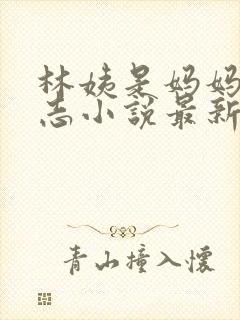 林姨是妈妈
志小说最新
青山撞入怀